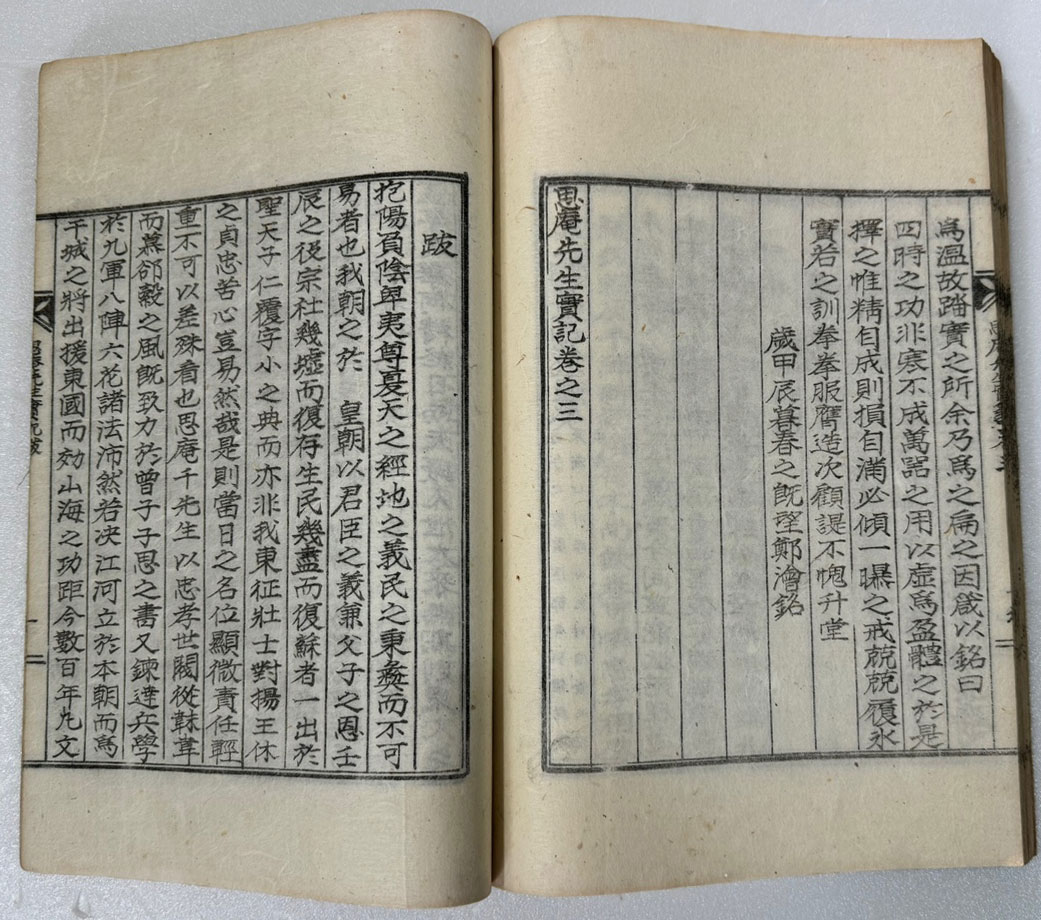 爲溫故踏實之所余乃爲之扁之因箴以銘曰
四時之功非寒不成萬器之用以虛爲盈體之於是
擇之惟精自成則損自滿必傾一曝之戒兢兢履氷
實若之訓拳拳服膺造次顧諟不愧升堂
歲甲辰暮春之旣望鄭澮銘
思庵先生實記卷之三
跋
抱陽負陰卑夷尊夏天之經地之義民之秉彜而不可
易者也我朝之於皇朝以君臣之義兼父子之恩壬
辰之役宗社幾墟而復存生民幾盡而復蘇者一出於
聖天子仁覆字小之典而亦非我東征壯士對揚王休
之貞忠苦心豈易然哉是則當日之名位顯微責任輕
重不可以差殊看也思庵千先生以忠孝世閥從韎韋
而慕郤縠之風旣致力於曾子子思之書又鍊達兵學
於九軍八陣六花諸法沛然若决江河立於本朝而爲
干城之將出援東國而効山海之功距今數百年凡文